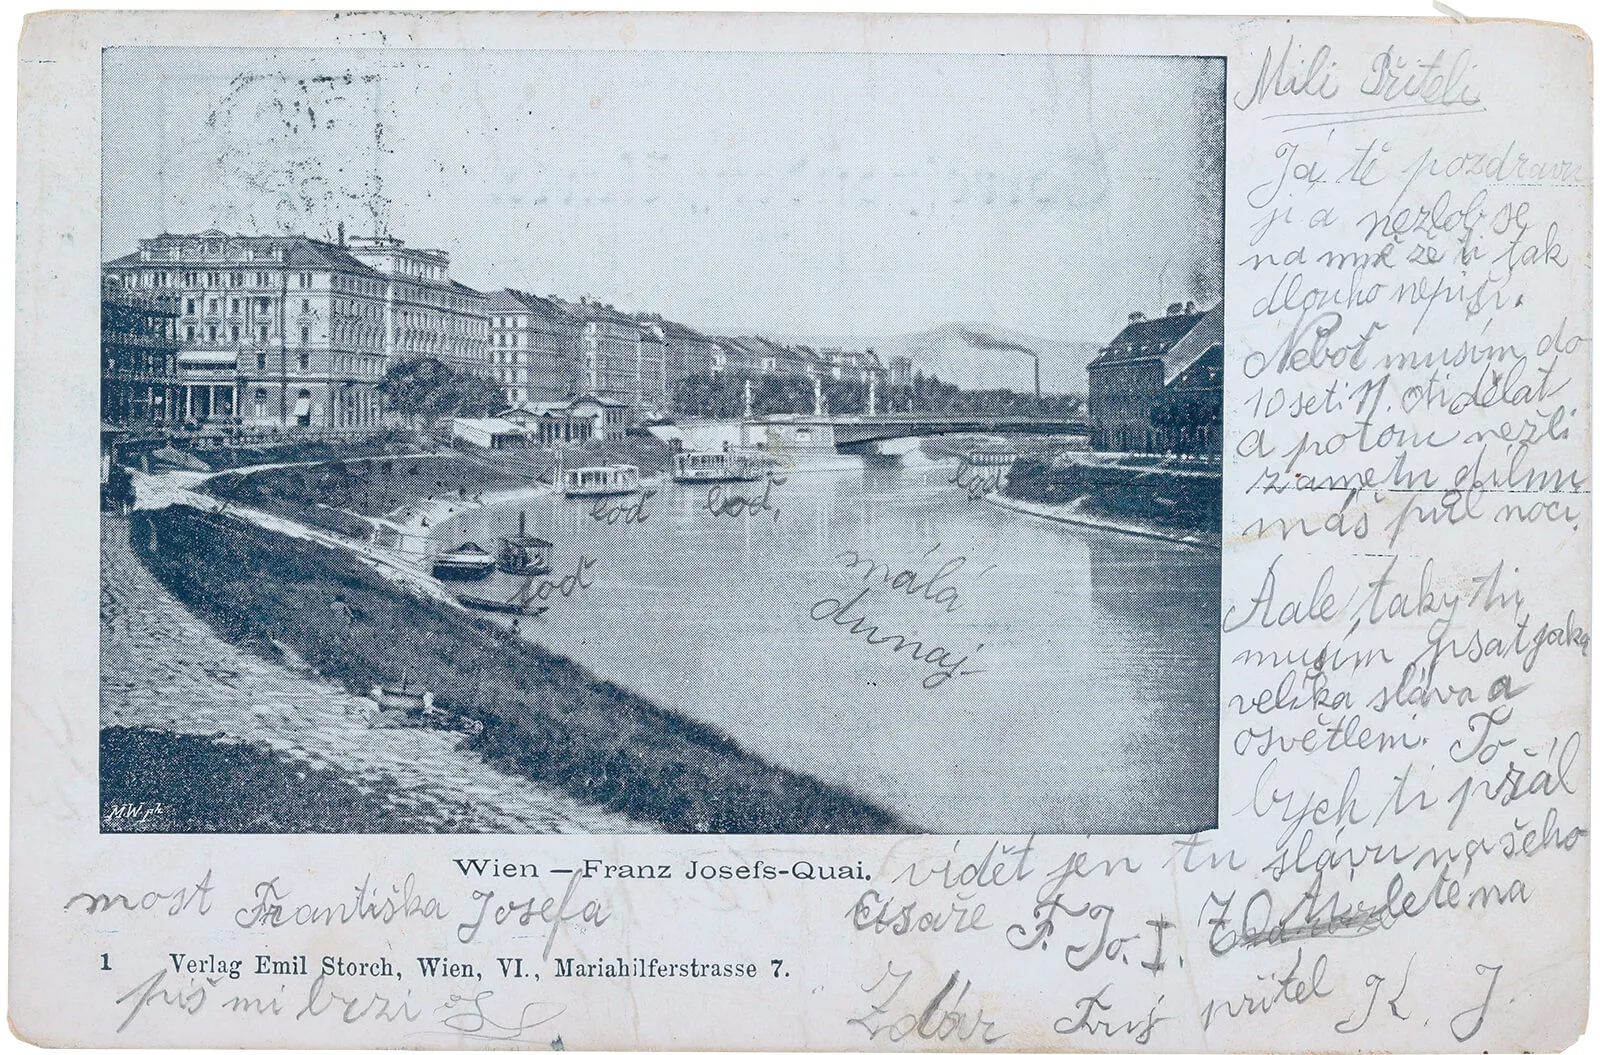 Milí Příteli
Já tě pozdravu
ji a nezlob se
na mně že ti tak
dlouho nepiši.
Neboť musím do
10 seti N. oti dělat
a potom nežli
zametu dílnu
máš půl noci.
A ale taky ti
musím psat jaka
velika sláva a
osvětleni. To
bych ti přál
vidět jen tu slávu našeho
Cisaře F. Jo. I.
leté na
Zdár Tvůj přitel K. J.
loď
loď,
loď
loď
málá
dunaj
M.W. ph.
Wien — Franz Josefs-Quai.
most Františka Josefa
1 Verlag Emil Storch, Wien, VI., Mariahilferstrasse 7.
piš mi brzi